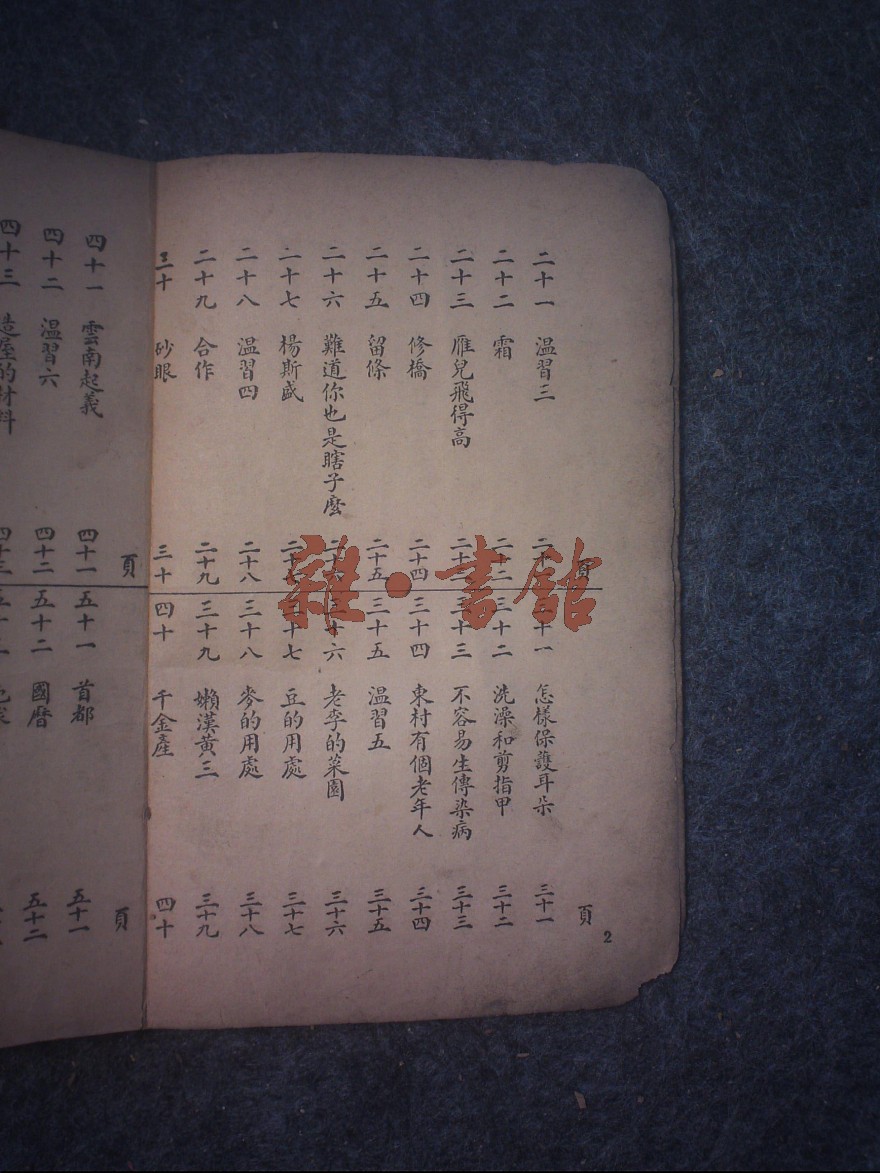 頁
二十一 温習三 二十一
二十二 霜 二十二
二十三 雁兒飛得高 二十三
二十四 修橋 二十四
二十五 留條 二十五
二十六 難道你也是瞎子麽 二十六
二十七 楊斯盛 二十七
二十八 温習四 二十八
二十九 合作 二十九
三十 砂眼 三十
頁
三十一 怎樣保護耳朵 三十一
三十二 洗澡和剪指甲 三十二
三十三 不容易生傳染病 三十三
三十四 東村有個老年人 三十四
三十五 温習五 三十五
三十六 老李的菜園 三十六
三十七 豆的用處 三十七
三十八 麥的用處 三十八
三十九 嬾漢黄三 三十九
四十 千金產 四十
2
頁
四十一 雲南起義 四十一
四十二 温習六 四十二
四十三 造屋的材料 四十三
頁
五十一 首都 五十一
五十二 國曆 五十二
雜·書館